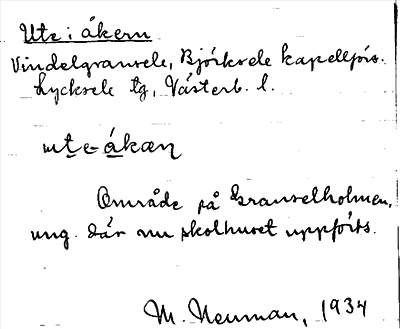 Ute i åkern
Vindelgransele, Björksele kapellförs.
Lycksele tg, Västerb. l.
ute-åkæn
Område på Granselholmen,
ung. där nu skolhuset uppförts.
M. Neuman, 1934